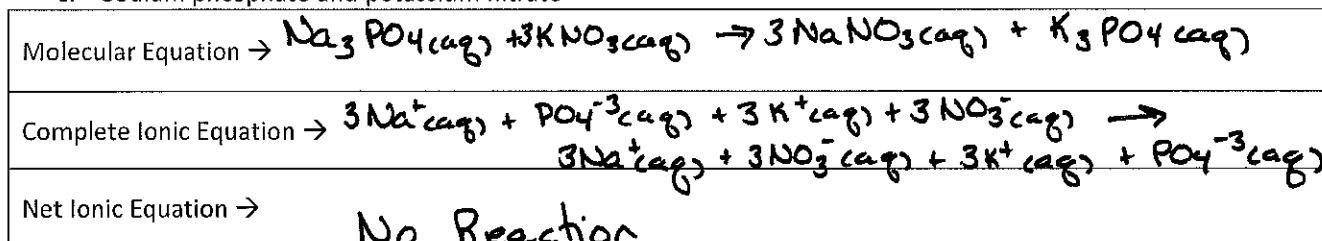 Sodium phosphate and potassium nitrate
Molecular Equation → Na₃PO₄(aq) + 3KNO₃(aq) → 3NaNO₃(aq) + K₃PO₄(aq)
Complete Ionic Equation → 3Na⁺(aq) + PO₄⁻³(aq) + 3K⁺(aq) + 3NO₃⁻(aq) →
3Na⁺(aq) + 3NO₃⁻(aq) + 3K⁺(aq) + PO₄⁻³(aq)
Net Ionic Equation →
No Reaction